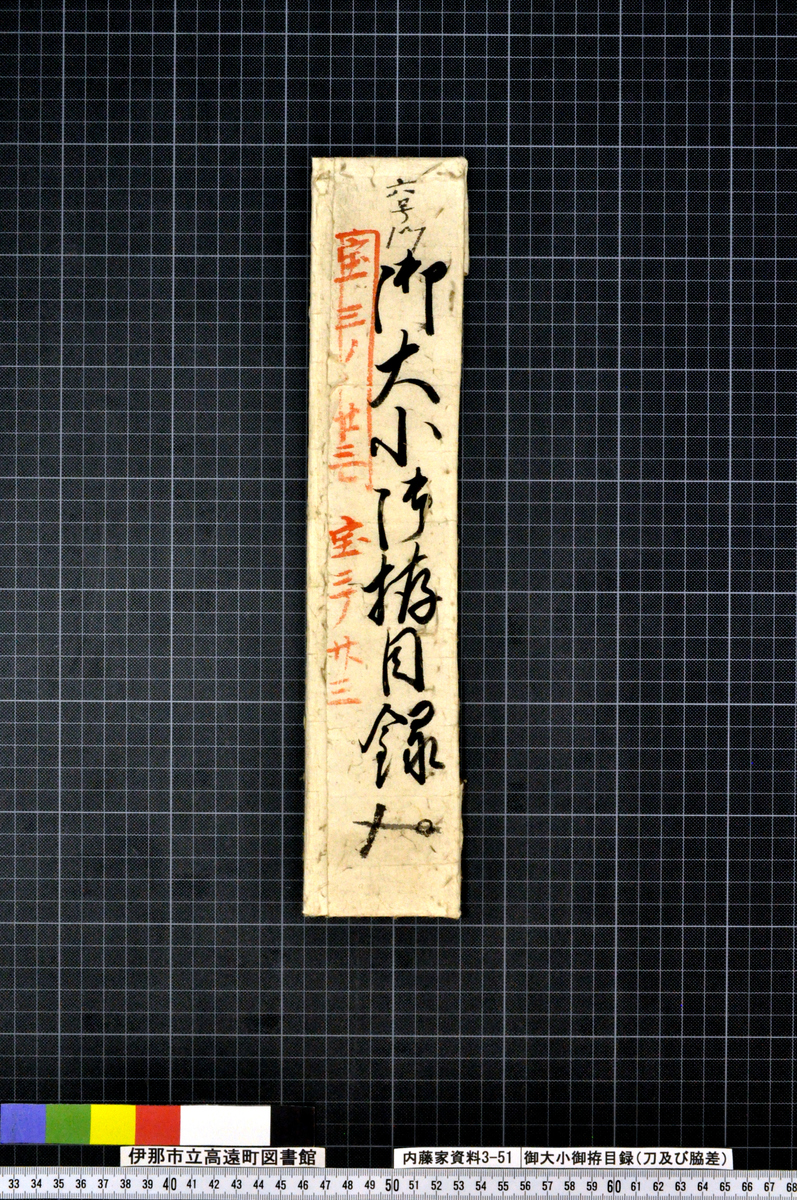 六号ノ
御大小御拵目録
宝三ノ廿三
宝三ノ廿三
伊那市立高遠町図書館
内藤家資料3-51 御大小御拵目録(刀及び脇差)
33 34 35 36 37 38 39 40 41 42 43 44 45 46 47 48 49 50 51 52 53 54 55 56 57 58 59 60 61 62 63 64 65 66 67 68